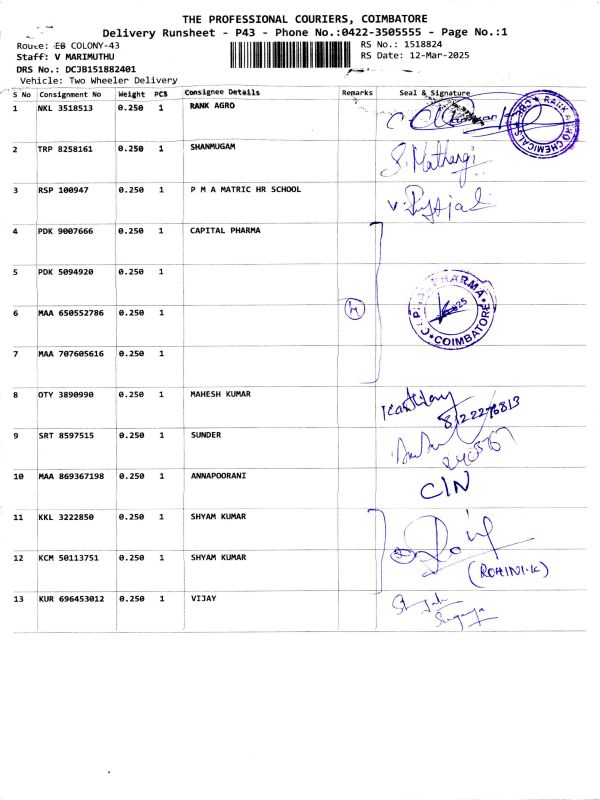 THE PROFESSIONAL COURIERS, COIMBATORE
Delivery Runsheet - P43 - Phone No.:0422-3505555 - Page No.:1
Route: EB COLONY-43
RS No.: 1518824
Staff: V MARIMUTHU
RS Date: 12-Mar-2025
DRS No.: DCJB151882401
Vehicle: Two Wheeler Delivery
S No Consignment No Weight PCS Consignee Details Remarks Seal & Signature
1 NKL 3518513 0.250 1 RANK AGRO
RANK AGRO CHEMICALS CBE
2 TRP 8258161 0.250 1 SHANMUGAM S. Mathangi
3 RSP 100947 0.250 1 P M A MATRIC HR SCHOOL
4 PDK 9007666 0.250 1 CAPITAL PHARMA
5 PDK 5094920 0.250 1
PHARMA
6 MAA 650552786 0.250 1
COIMBATORE
7 MAA 707605616 0.250 1
8 OTY 3890990 0.250 1 MAHESH KUMAR
9 SRT 8597515 0.250 1 SUNDER
10 MAA 869367198 0.250 1 ANNAPOORANI C/N
11 KKL 3222850 0.250 1 SHYAM KUMAR
12 KCM 50113751 0.250 1 SHYAM KUMAR (ROHINI.K)
13 KUR 696453012 0.250 1 VIJAY